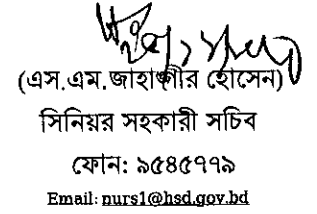 (এস.এম.জাহাঙ্গীর হোসেন)
সিনিয়র সহকারী সচিব
ফোন: ৯৫৪৫৭৭৯
Email: nurs1@hsd.gov.bd